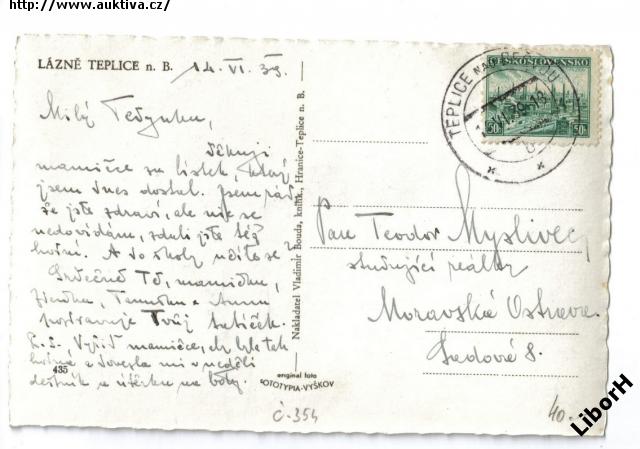 http://www.auktiva.cz/
LÁZNĚ TEPLICE n. B. 14. VI. 39.
Milý Tedynku,
Děkuji
mamičce za lístek, který
jsem dnes dostal. Jsem rád,
že jste zdraví, ale nic se
nedovídám, zdali jste též
hodní. A do školy učíte se?
Srdečně Tě, mamičku,
a
pozdravuje Tvůj tatíček.
P. S. Vyřiď mamičce, by byla tak
hodná a dovezla mi v neděli
deštník a utěrku na boty.
435
Nakladatel Vladimír Bouda, knihk., Hranice-Teplice n. B.
original foto
FOTOTYPIA-VYŠKOV
Č-354
ČESKOSLOVENSKO
50h 50h
TEPLICE NAD BEČVOU
Pan Teodor Myslivec,
studující reálky
Moravská Ostrava.
Sadová 8.
40.-
LiborH